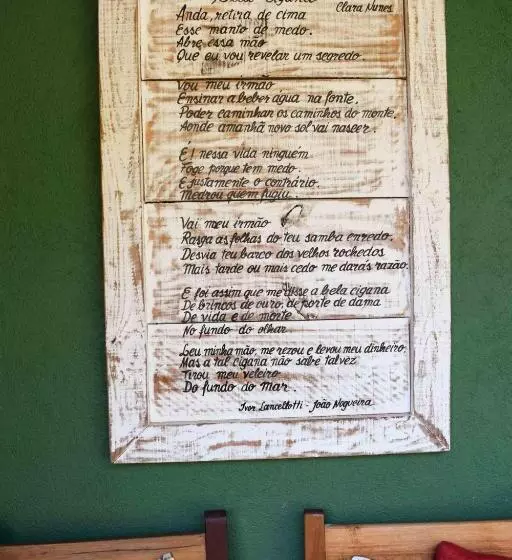 Clara Nunes
Anda, retira de cima
Esse manto de medo.
Abre essa mão
Que eu vou revelar um segredo
Vou meu irmão
Ensinar a beber água na fonte.
Poder caminhar os caminhos do monte.
Aonde amanhã novo sol vai nascer.
E! nessa vida ninguém
Foge porque tem medo.
E justamente o contrário.
Medrou quem fugiu.
Vai meu irmão
Rasga as folhas do teu samba enredo.
Desvia teu barco dos velhos rochedos
Mais tarde ou mais cedo me darás razão.
E foi assim que me disse a bela cigana
De brincos de ouro, de porte de dama
De vida e de morte
No fundo do olhar
Leu minha mão, me rezou e levou meu dinheiro,
Mas a tal cigana não sabe talvez
Tirou meu veleiro
Do fundo do mar
Ivor Lancellotti - João Nogueira